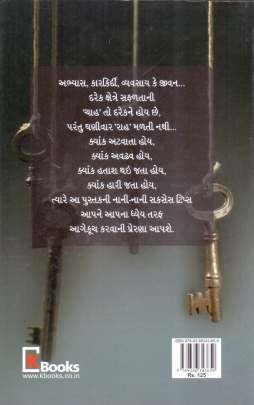 અભ્યાસ, કારકિર્દી, વ્યવસાય કે જીવન...
દરેક ક્ષેત્રે સફળતાની
'ચાહ' તો દરેકને હોય છે,
પરંતુ ઘણીવાર 'રાહ' મળતી નથી...
ક્યાંક અટવાતા હોય,
ક્યાંક અવઢવ હોય,
ક્યાંક હતાશ થઇ જતા હોય,
ક્યાંક હારી જતા હોય,
ત્યારે આ પુસ્તકની નાની-નાની સક્સેસ ટિપ્સ
આપને આપના ધ્યેય તરફ
આગેકૂચ કરવાની પ્રેરણા આપશે.
K Books
www.kbooks.co.in
Rs. 125